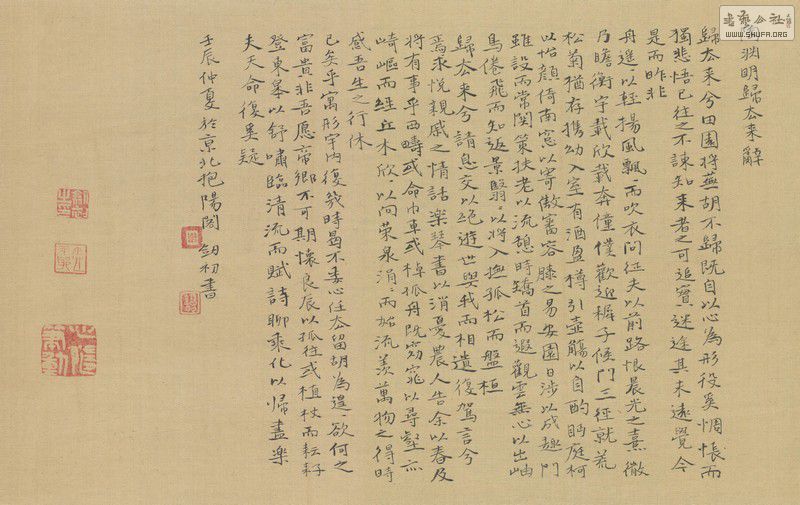 渊明歸去来辭
歸去来兮田園將蕪胡不歸既自以心為形役奚惆悵而
獨悲悟已往之不諫知来者之可追寔迷途其未遠覺今
是而昨非
舟遥〻以輕揚風飄〻而吹衣问征夫以前路恨晨光之熹微
乃瞻衡宇載欣載奔僮僕歡迎稚子候门三徑就荒
松菊猶存携幼入室有酒盈樽引壺觴以自酌眄庭柯
以怡顔倚南窓以寄傲審容膝之易安園日涉以成趣门
雖設而常関策扶老以流憩時矯首而遐觀雲無心以出岫
鳥倦飛而知返景翳〻以將入撫孤松而盤桓
歸去来兮請息交以绝遊世與我而相遺復駕言兮
焉求悦親戚之情話楽琴書以消憂農人告余以春及
將有事乎西疇或命巾車或棹孤舟既窈窕以尋壑亦
崎嶇而經丘木欣〻以向荣泉涓〻而始流羡萬物之得時
感吾生之行休
已矣乎寓形宇内復幾時曷不委心任去留胡為遑〻欲何之
富貴非吾愿帝鄉不可期懷良辰以孤往或植杖而耘耔
登東皋以舒嘯臨清流而賦詩聊乘化以歸盡楽
夫天命復奚疑
壬辰仲夏於京北抱陽閣初書
WWW.SHUFA.ORG